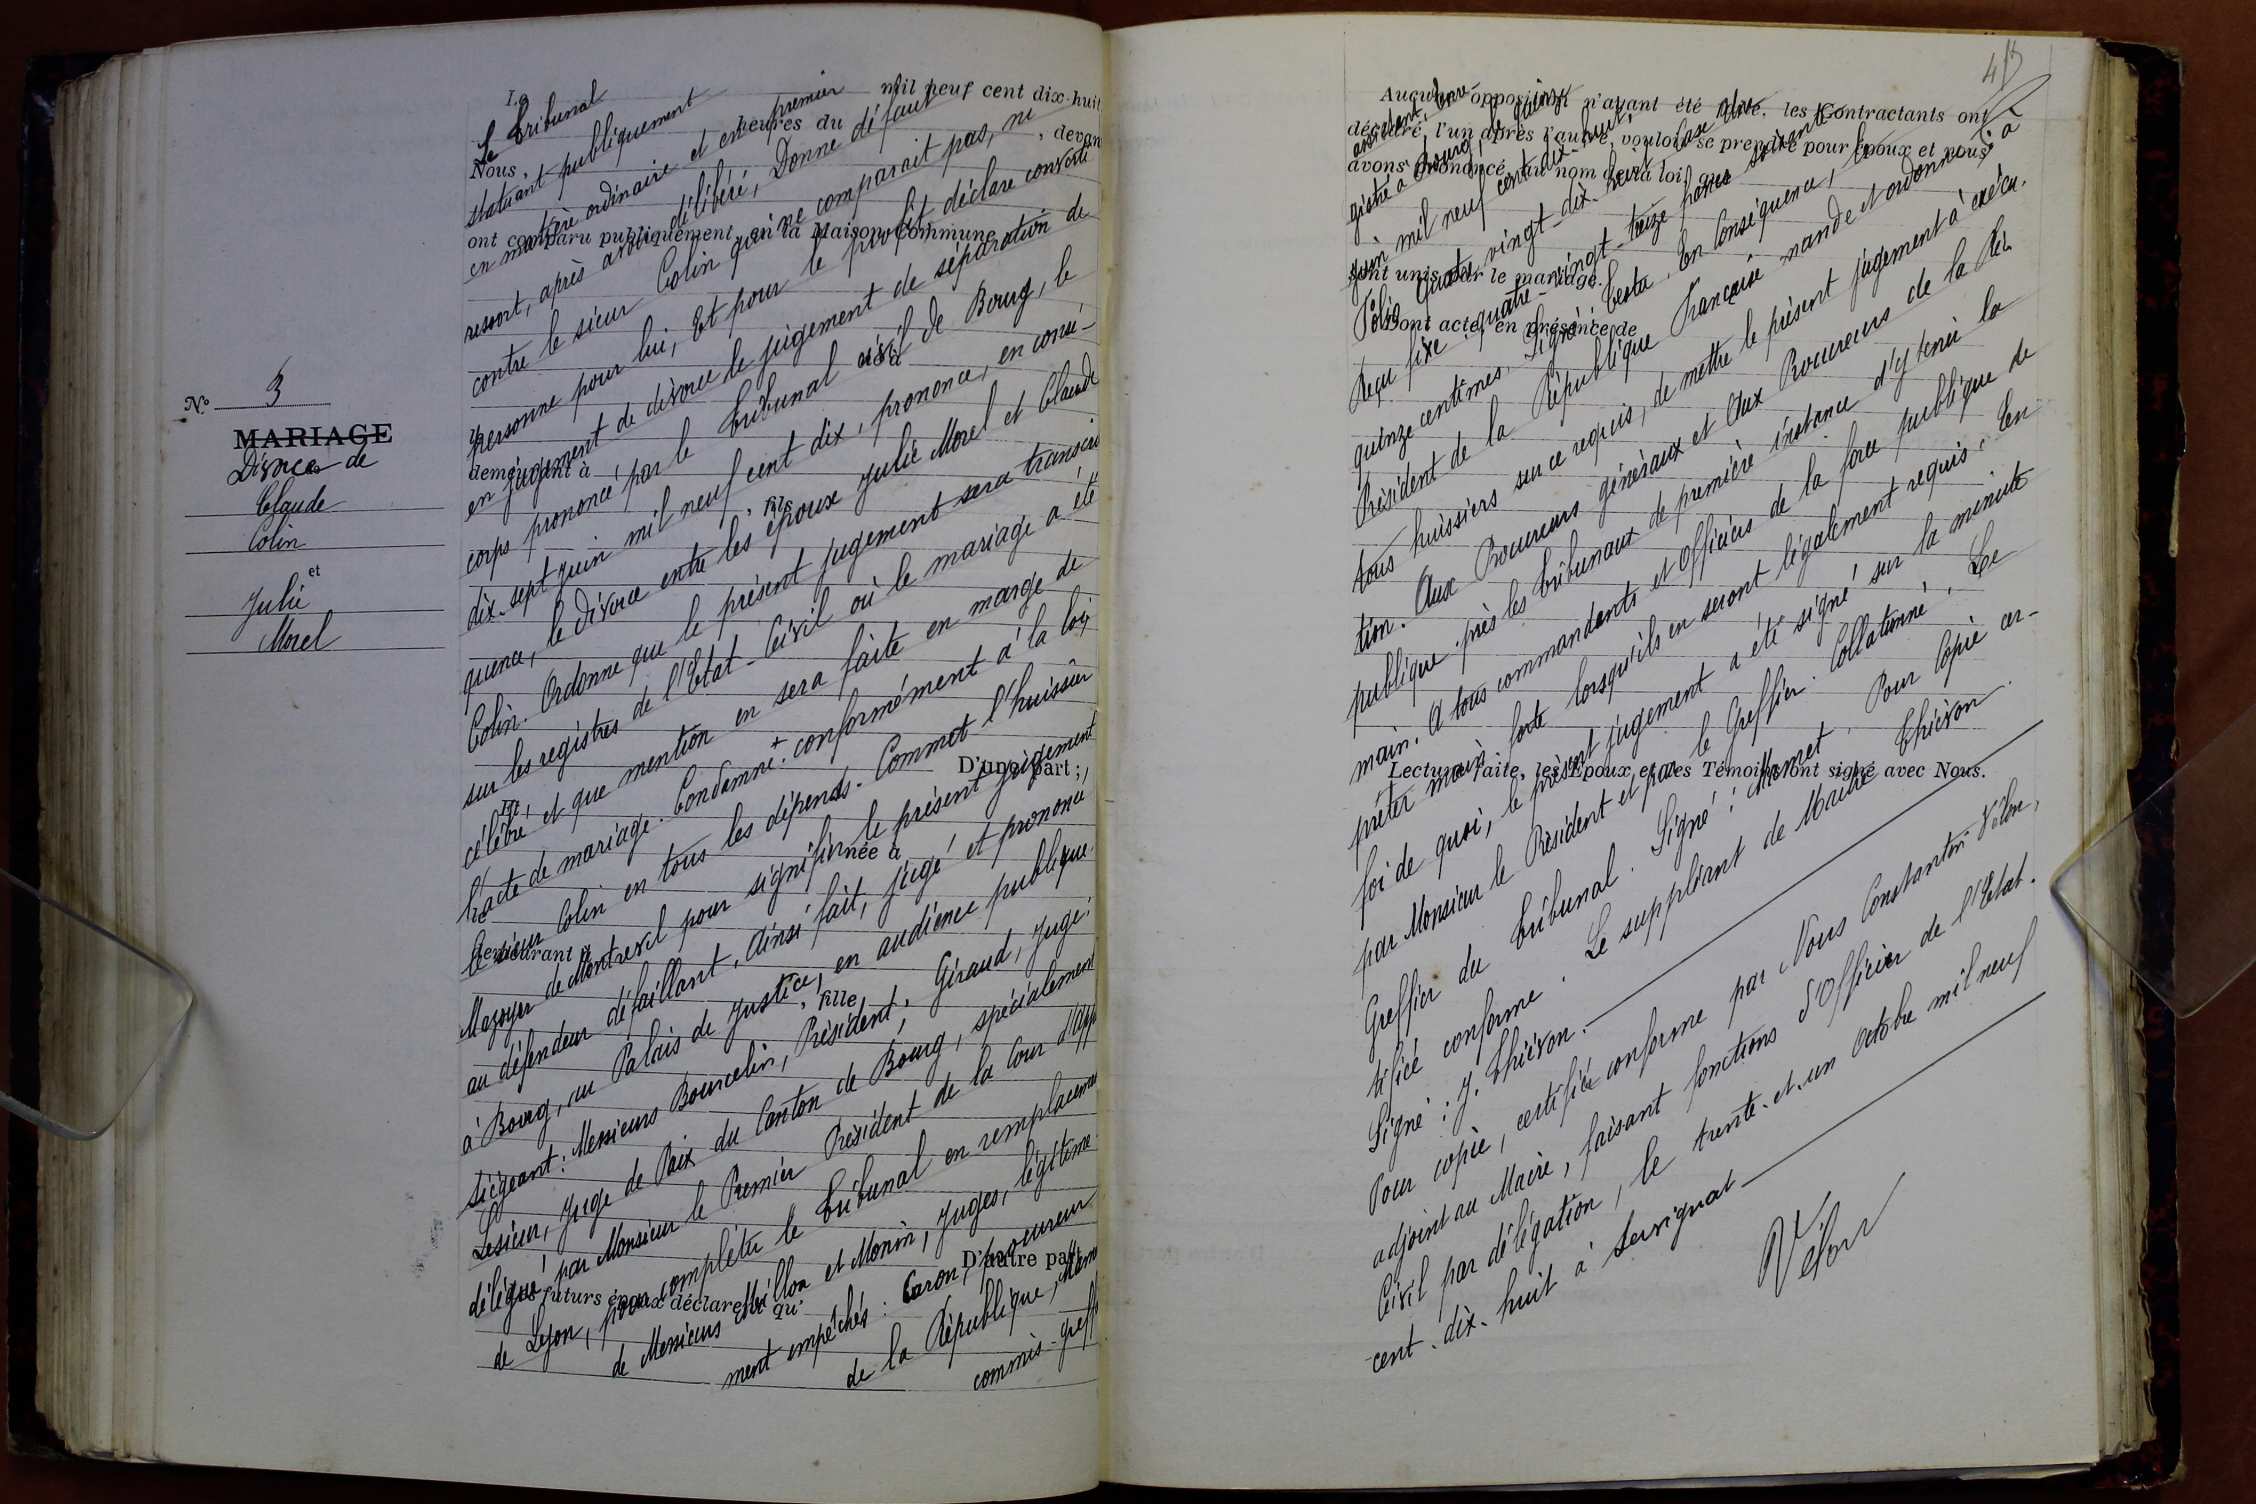 N.o 3
MARIAGE
Divorce de
Claude
Colin
et
Julie
Morel
Le
mil neuf cent dix-huit
heures du
Nous,
, devan
ont comparu publiquement en la Maison Commune
I.o
né à
demeurant à
, fils
D'une part;
Et
née à
demeurant à
, fille
D'autre part
Les futurs époux déclarent qu'
Le Tribunal
statuant publiquement
en matière ordinaire et en premier
ressort, après avoir délibéré, Donne défaut
contre le sieur Colin qui ne comparait pas, ni
personne pour lui, Et pour le profit déclare converti
en jugement de divorce le jugement de séparation de
corps prononcé par le Tribunal civil de Bourg, le
dix-sept juin mil neuf cent dix, prononce, en consé-
quence, le divorce entre les époux Julie Morel et Claude
Colin. Ordonne que le présent jugement sera transcrit
sur les registres de l'Etat-Civil où le mariage a été
célébré et que mention en sera faite en marge de
l'acte de mariage. Condamne + conformément à la loi,
le sieur Colin en tous les dépends. Commet l'huissier
Mazoyer de Montrevel pour signifier le présent jugement
au défendeur défaillant. Ainsi fait, jugé et prononcé
à Bourg, au Palais de Justice, en audience publique.
Siégeant: Messieurs Bourcelin, Président, Giraud, Juge,
Lesieur, Juge de Paix du Canton de Bourg, spécialement
délégué par Monsieur le Premier Président de la Cour d'App
de Lyon, pour compléter le Tribunal en remplacemen
de Messieurs Millon et Monin, Juges, légitime-
ment empêchés: Caron, procureur
de la République, Mam
commis-greff
45
Aucune opposition n'ayant été les Contractants ont
déclaré, l'un après l'autre, vouloir se prendre pour époux et nous
avons prononcé au nom de la loi que
sont unis par le mariage.
Dont acte, en présence de
Lecture faite, les Epoux et les Témoins ont signé avec Nous.
gistré à Bourg, le quinze
juin mil neuf cent dix-huit,
Folio quatre vingt-dix-huit case
Reçu fixe: quatre-vingt-treize francs soixante-
quinze centimes. Signé: Testa. En Conséquence, le
Président de la République Française mande et ordonne: à
tous huissiers sur ce requis, de mettre le présent jugement à exécu-
tion. Aux Procureurs généraux et Aux Procureurs de la Ré-
publique près les Tribunaux de première instance d'y tenir la
main. A tous commandants et Officiers de la force publique de
prêter main forte lorsqu'ils en seront légalement requis. En
foi de quoi, le présent jugement a été signé sur la minute
par Monsieur le Président et par le Greffier. Collationné. Le
Greffier du Tribunal. Signé: Mamet. Pour Copie cer-
tifiée conforme. Le suppléant de Maître Thiévon
Signé: J. Thiévon.
Pour copie, certifiée conforme par Nous Constantin Velon,
adjoint au Maire, faisant fonctions d'Officier de l'Etat-
Civil par délégation, le trente-et-un Octobre mil neuf
cent-dix-huit à Servignat
Velon